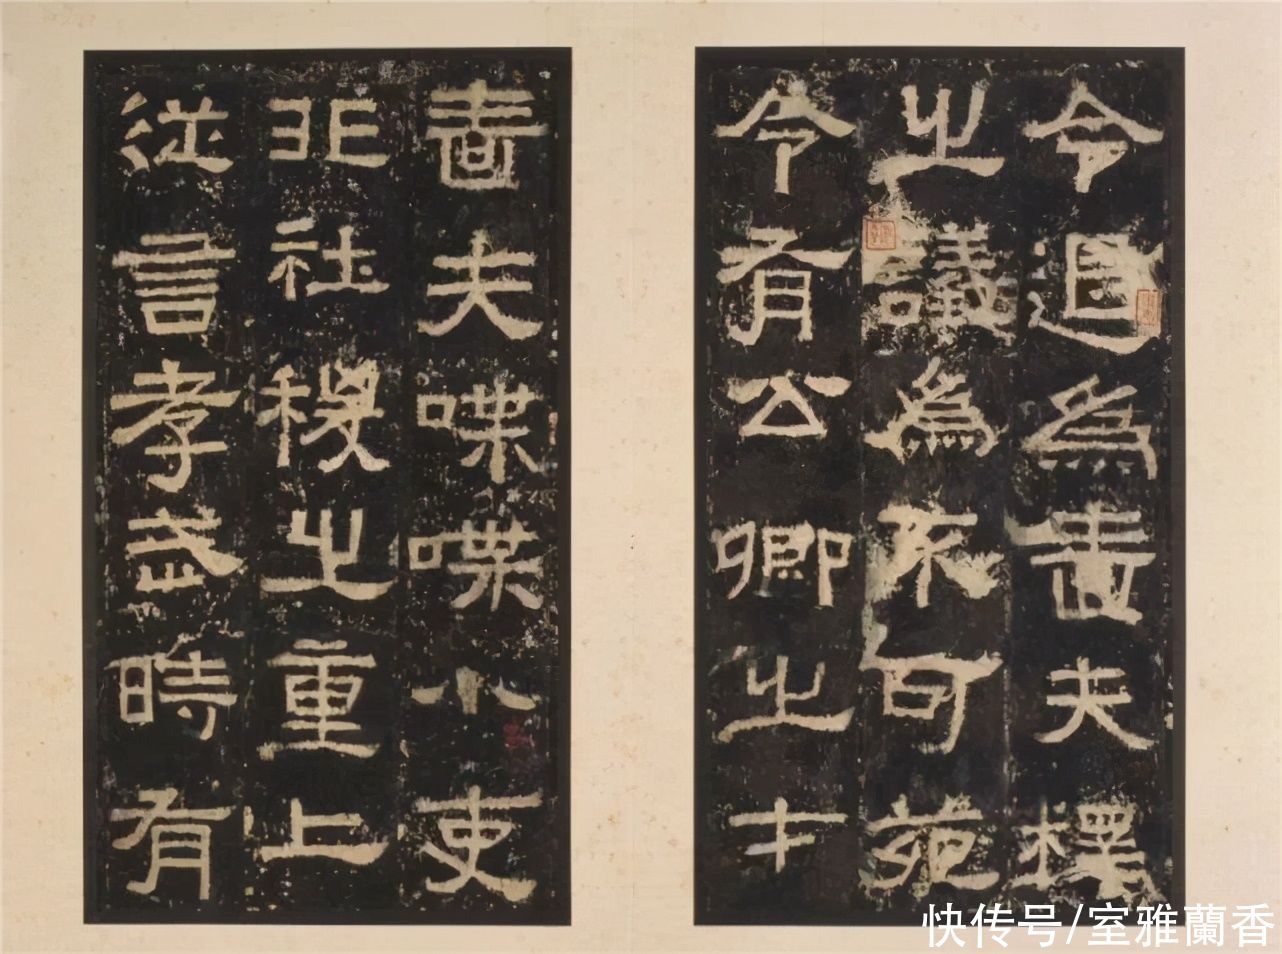 令退為嗇夫釋
之議為不可苑
令有公卿之才
嗇夫喋喋小吏
非社稷之重上
從言孝武時有
快传号/室雅蘭香